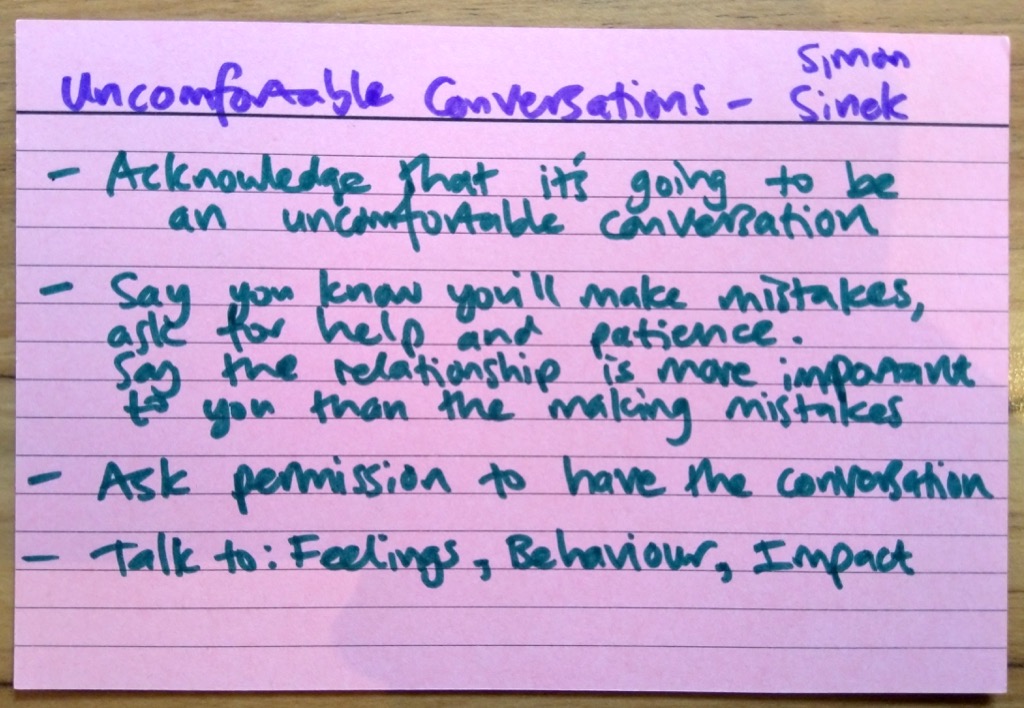 Uncomfortable Conversations - Simon Sinek
- Acknowledge that it's going to be
an uncomfortable conversation
- Say you know you'll make mistakes,
ask for help and patience.
Say the relationship is more important
to you than the making mistakes
- Ask permission to have the conversation
- Talk to: Feelings, Behaviour, Impact